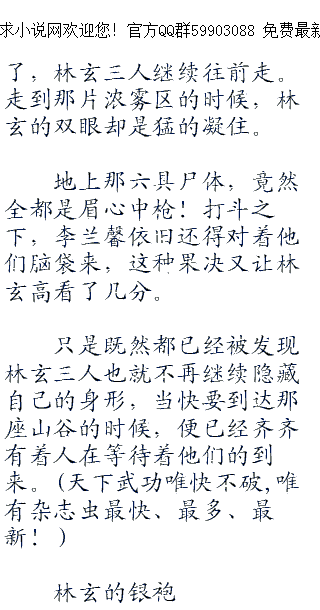 求小说网欢迎您！官方QQ群59903088 免费最新
了，林玄三人继续往前走。
走到那片浓雾区的时候，林
玄的双眼却是猛的凝住。
地上那六具尸体，竟然
全都是眉心中枪！打斗之
下，李兰馨依旧还得对着他
们脑袋来，这种果决又让林
玄高看了几分。
只是既然都已经被发现
林玄三人也就不再继续隐藏
自己的身形，当快要到达那
座山谷的时候，便已经齐齐
有着人在等待着他们的到
来。(天下武功唯快不破,唯
有杂志虫最快、最多、最
新！)
林玄的银袍